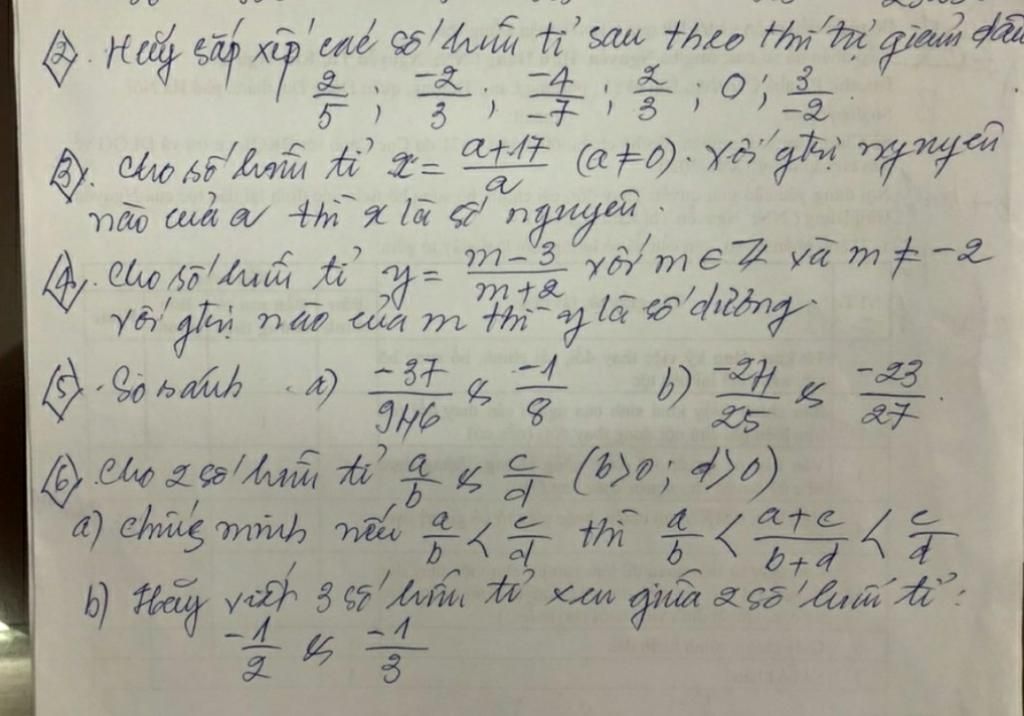 2). Hãy sắp xếp các số hữu tỉ sau theo thứ tự giảm dần
2/5 ; -2/3 ; -4/-7 ; 2/3 ; 0 ; 3/-2
3). Cho số hữu tỉ x = a+17/a (a ≠ 0). Với gtrị nguyên
nào của a thì x là số nguyên.
4). Cho số hữu tỉ y = m-3/m+2 với m ∈ Z và m ≠ -2
với gtrị nào của m thì y là số dương.
5). So sánh a) -37/946 & -1/8 b) -24/25 & -23/27.
6). Cho 2 số hữu tỉ a/b & c/d (b>0; d>0)
a) chứng minh nếu a/b < c/d thì a/b < a+c/b+d < c/d
b) Hãy viết 3 số hữu tỉ xen giữa 2 số hữu tỉ:
-1/2 & -1/3